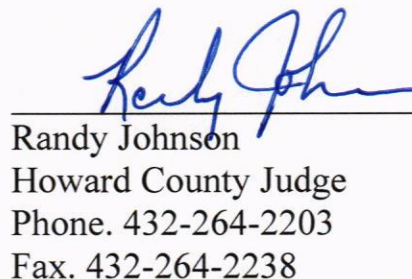 Randy Johnson
Howard County Judge
Phone. 432-264-2203
Fax. 432-264-2238